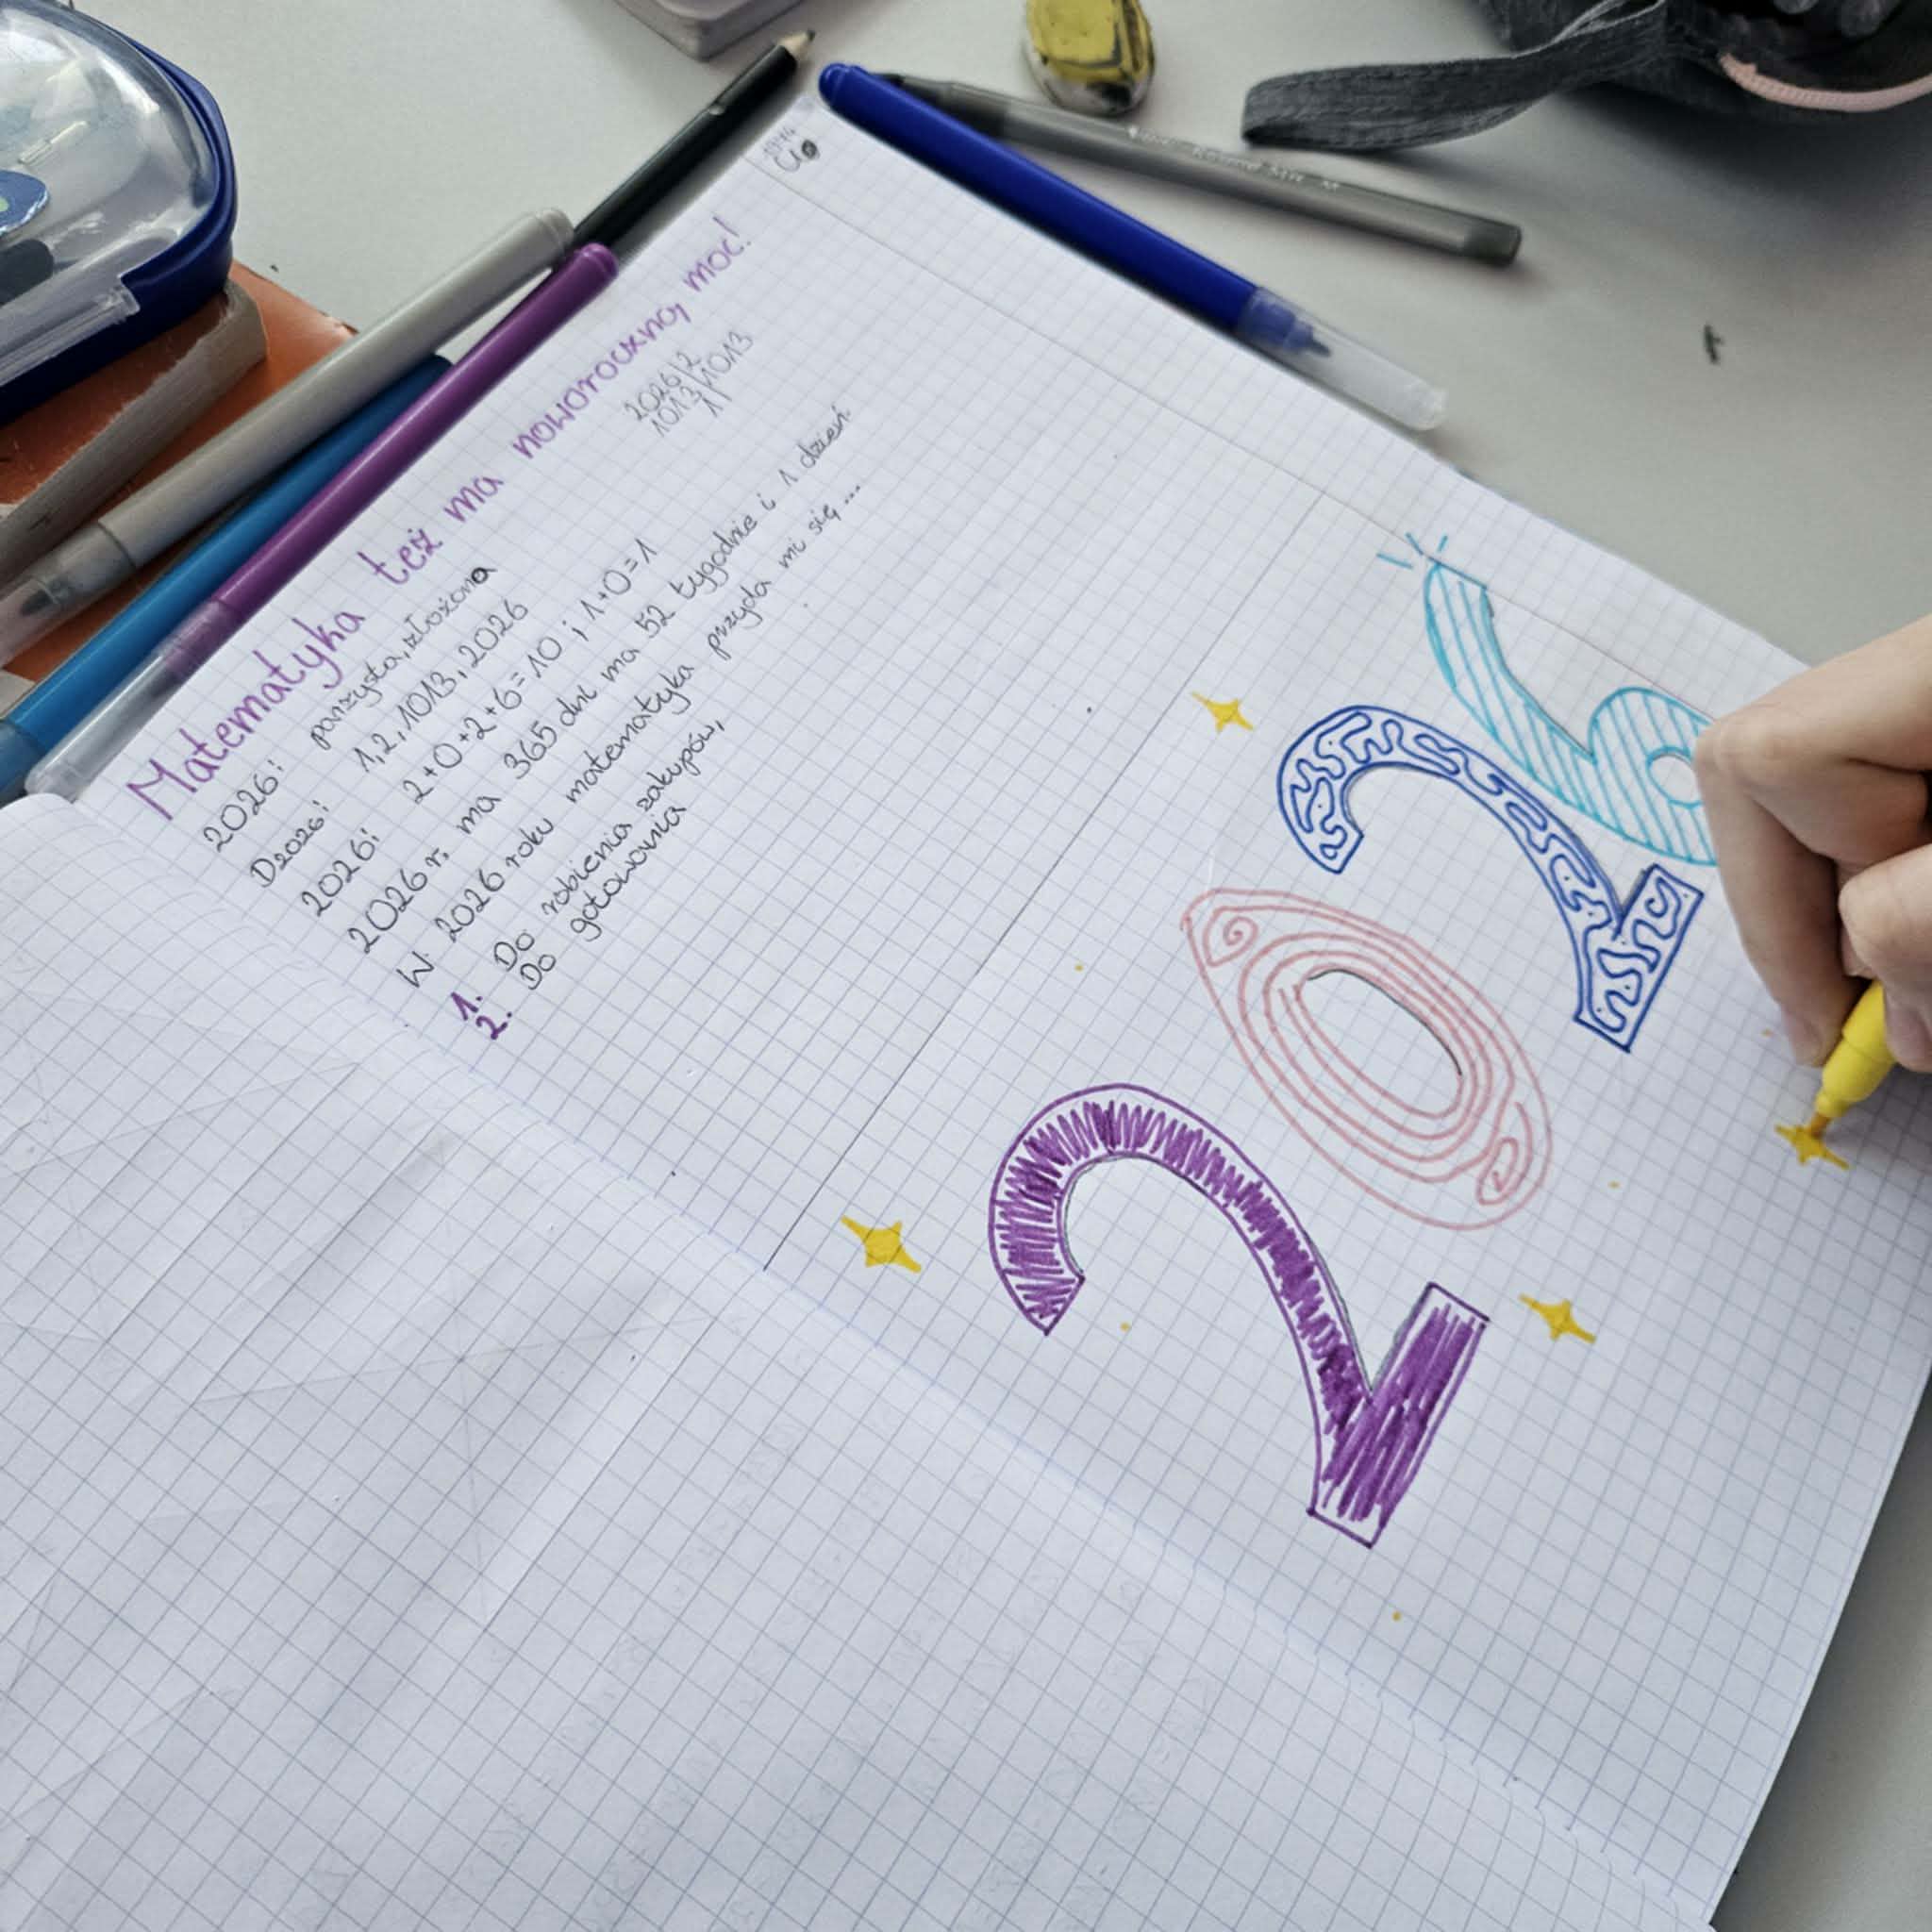 Matematyka też ma noworoczną moc!
2026: parzysta, złożona
2026|2
1013|1013
1|
D2026: 1,2,1013,2026
2026: 2+0+2+6=10 i 1+0=1
2026 r. ma 365 dni ma 52 tygodnie i 1 dzień
W 2026 roku matematyka przyda mi się...
1. Do robienia zakupów,
2. Do gotowania
2026